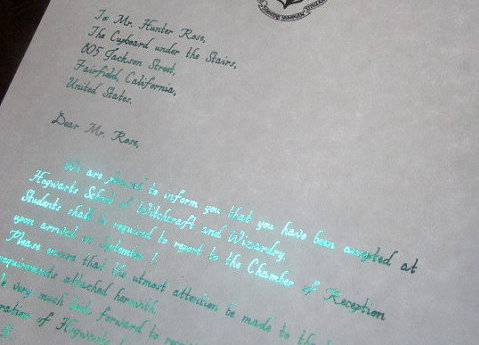 To Mr. Hunter Rose,
The Cupboard under the Stairs,
605 Jackson Street,
Fairfield, California,
United States.
Dear Mr. Rose,
We are pleased to inform you that you have been accepted at
Hogwarts School of Witchcraft and Wizardry.
Students shall be required to report to the Chamber of Reception
upon arrival on September 1
Please ensure that the utmost attention be made to the
requirements attached herewith.
very much look forward to
of Hogwarts